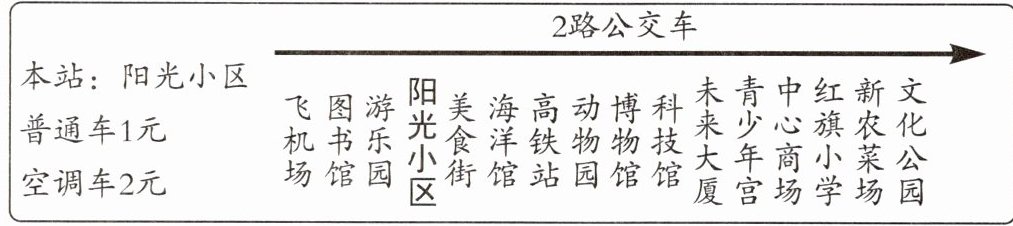 2路公交车
本站：阳光小区
普通车1元
空调车2元
飞机场
图书馆
游乐园
阳光小区
美食街
海洋馆
高铁站
动物园
博物馆
科技馆
未来大厦
青少年宫
中心商场
红旗小学
新农菜场
文化公园